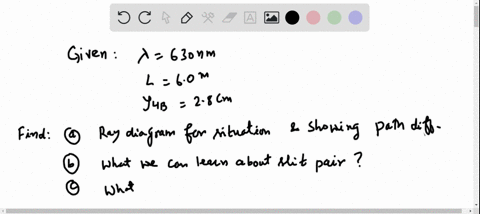 Given : λ = 630nm
L = 6.0 m
y4B = 2.8 cm
Find : (a) Ray diagram for situation & showing path diff.
(b) What we can learn about slit pair ?
(c) What